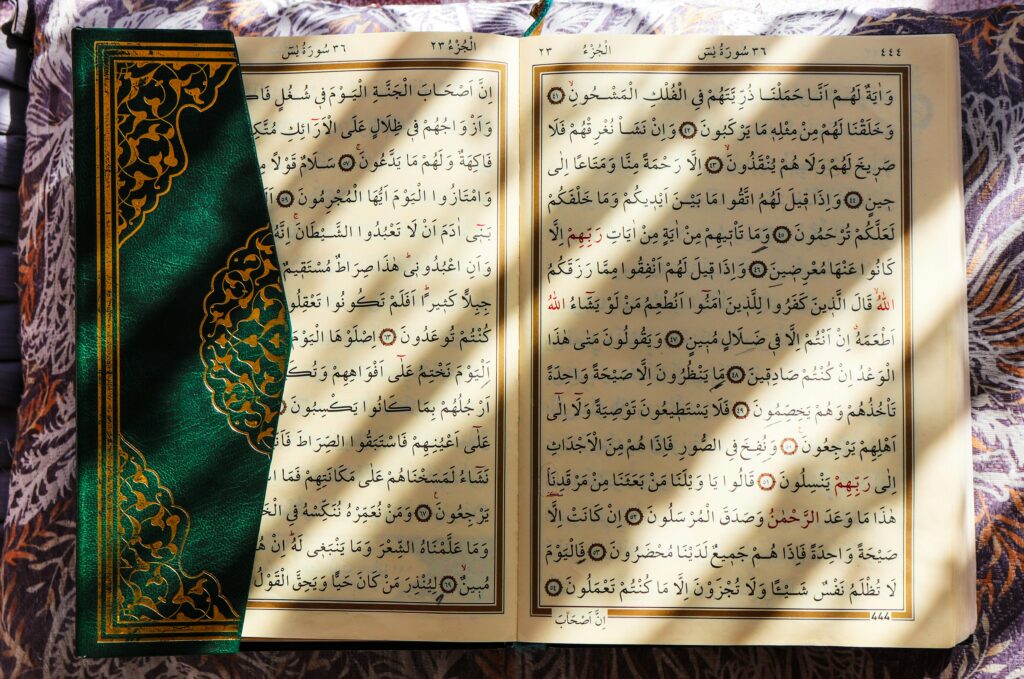 ٤٤٤ ٣٦ سُورَةُ يٰسٓ اَلْجُزْءُ ٢٣
وَاٰيَةٌ لَهُمْ اَنَّا حَمَلْنَا ذُرِّيَّتَهُمْ فِي الْفُلْكِ الْمَشْحُونِۙ ﴿٤١﴾
وَخَلَقْنَا لَهُمْ مِنْ مِثْلِهٖ مَا يَرْكَبُونَ ﴿٤٢﴾ وَاِنْ نَشَأْ نُغْرِقْهُمْ فَلَا
صَرٖيخَ لَهُمْ وَلَا هُمْ يُنْقَذُونَۙ ﴿٤٣﴾ اِلَّا رَحْمَةً مِنَّا وَمَتَاعًا اِلٰى
حٖينٍ ﴿٤٤﴾ وَاِذَا قٖيلَ لَهُمُ اتَّقُوا مَا بَيْنَ اَيْدٖيكُمْ وَمَا خَلْفَكُمْ
لَعَلَّكُمْ تُرْحَمُونَ ﴿٤٥﴾ وَمَا تَأْتٖيهِمْ مِنْ اٰيَةٍ مِنْ اٰيَاتِ رَبِّهِمْ اِلَّا
كَانُوا عَنْهَا مُعْرِضٖينَ ﴿٤٦﴾ وَاِذَا قٖيلَ لَهُمْ اَنْفِقُوا مِمَّا رَزَقَكُمُ
اللّٰهُۙ قَالَ الَّذٖينَ كَفَرُوا لِلَّذٖينَ اٰمَنُٓوا اَنُطْعِمُ مَنْ لَوْ يَشَٓاءُ اللّٰهُ
اَطْعَمَهُۗ اِنْ اَنْتُمْ اِلَّا فٖي ضَلَالٍ مُبٖينٍ ﴿٤٧﴾ وَيَقُولُونَ مَتٰى هٰذَا
الْوَعْدُ اِنْ كُنْتُمْ صَادِقٖينَ ﴿٤٨﴾ مَا يَنْظُرُونَ اِلَّا صَيْحَةً وَاحِدَةً
تَأْخُذُهُمْ وَهُمْ يَخِصِّمُونَ ﴿٤٩﴾ فَلَا يَسْتَطٖيعُونَ تَوْصِيَةً وَلَٓا اِلٰٓى
اَهْلِهِمْ يَرْجِعُونَ۟ ﴿٥٠﴾ وَنُفِخَ فِي الصُّورِ فَاِذَا هُمْ مِنَ الْاَجْدَاثِ
اِلٰى رَبِّهِمْ يَنْسِلُونَ ﴿٥١﴾ قَالُوا يَا وَيْلَنَا مَنْ بَعَثَنَا مِنْ مَرْقَدِنَاۢ
هٰذَا مَا وَعَدَ الرَّحْمٰنُ وَصَدَقَ الْمُرْسَلُونَ ﴿٥٢﴾ اِنْ كَانَتْ اِلَّا
صَيْحَةً وَاحِدَةً فَاِذَا هُمْ جَمٖيعٌ لَدَيْنَا مُحْضَرُونَ ﴿٥٣﴾ فَالْيَوْمَ
لَا تُظْلَمُ نَفْسٌ شَيْـًٔا وَلَا تُجْزَوْنَ اِلَّا مَا كُنْتُمْ تَعْمَلُونَ ﴿٥٤﴾
444
اِنَّ اَصْحَابَ
اَلْجُزْءُ ٢٣ ٣٦ سُورَةُ يٰسٓ
اِنَّ اَصْحَابَ الْجَنَّةِ الْيَوْمَ فٖي شُغُلٍ
وَاَزْوَاجُهُمْ فٖي ظِلَالٍ عَلَى الْاَرَٓائِكِ
فَاكِهَةٌ وَلَهُمْ مَا يَدَّعُونَۚ ﴿٥٧﴾ سَلَامٌ قَوْلًا
وَامْتَازُوا الْيَوْمَ اَيُّهَا الْمُجْرِمُونَ ﴿٥٩﴾
بَنٖٓي اٰدَمَ اَنْ لَا تَعْبُدُوا الشَّيْطَانَۚ اِنَّهُ
وَاَنِ اعْبُدُونٖيۜ هٰذَا صِرَاطٌ مُسْتَقٖيمٌ
جِبِلًّا كَثٖيرًاۜ اَفَلَمْ تَكُونُوا تَعْقِلُونَ
كُنْتُمْ تُوعَدُونَ ﴿٦٣﴾ اِصْلَوْهَا الْيَوْمَ
اَلْيَوْمَ نَخْتِمُ عَلٰٓى اَفْوَاهِهِمْ
اَرْجُلُهُمْ بِمَا كَانُوا يَكْسِبُونَ
عَلٰٓى اَعْيُنِهِمْ فَاسْتَبَقُوا الصِّرَاطَ
نَشَٓاءُ لَمَسَخْنَاهُمْ عَلٰى مَكَانَتِهِمْ فَمَا
يَرْجِعُونَ۟ ﴿٦٧﴾ وَمَنْ نُعَمِّرْهُ نُنَكِّسْهُ فِي
وَمَا عَلَّمْنَاهُ الشِّعْرَ وَمَا يَنْبَغٖي لَهُۜ اِنْ
مُبٖينٌۙ ﴿٦٩﴾ لِيُنْذِرَ مَنْ كَانَ حَيًّا وَيَحِقَّ الْقَوْلُ